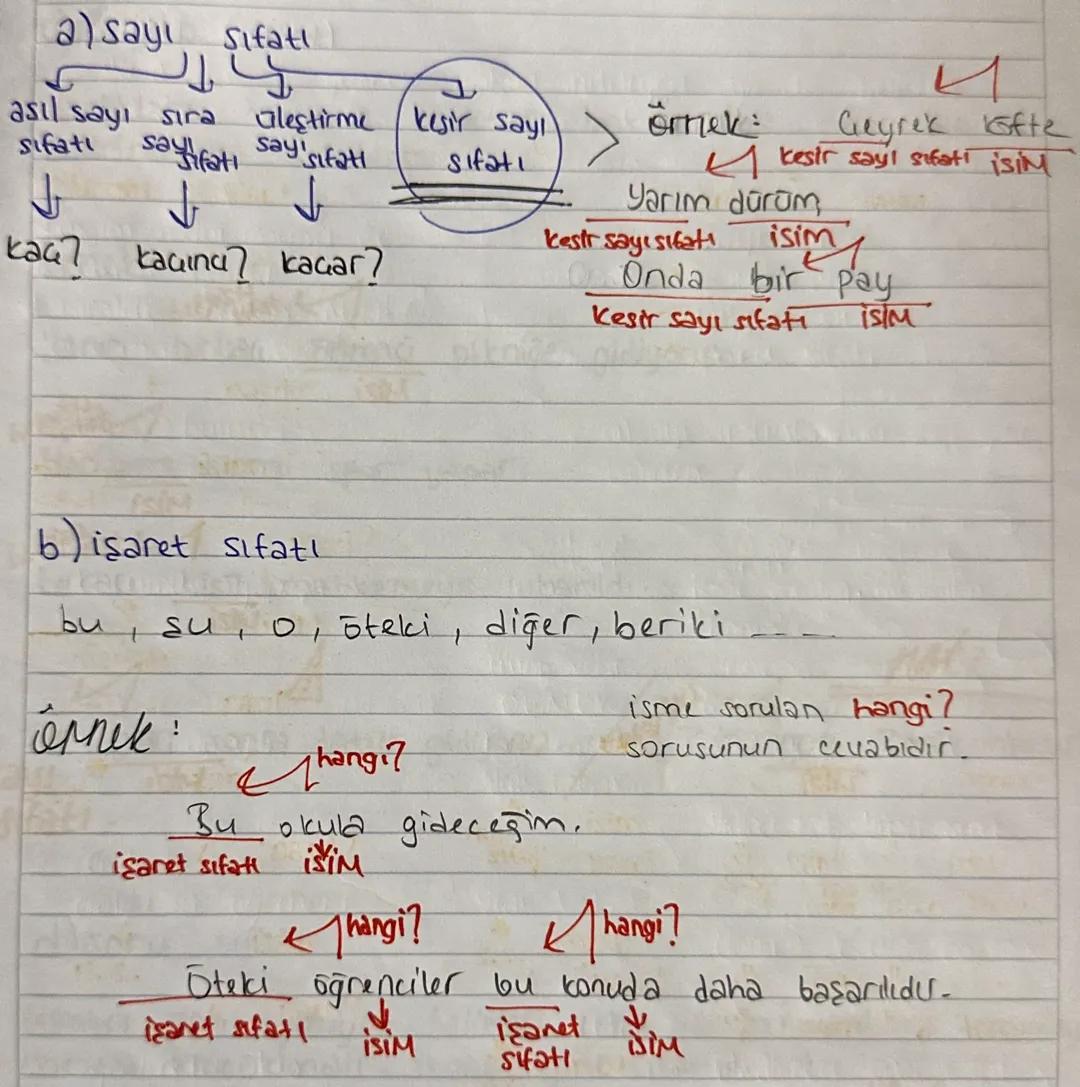 a) sayı sıfatı
asıl sayı sıfatı
sıra sayı sıfatı
üleştirme sayı sıfatı
kesir sayı sıfatı
kaç?
kaçıncı?
kaçar?
> örnek: Çeyrek köfte
kesir sayı sıfatı isim
Yarım dürüm
kesir sayı sıfatı isim
Onda bir pay
kesir sayı sıfatı isim
b) işaret sıfatı
bu, şu, o, öteki, diğer, beriki ----
isme sorulan hangi?
sorusunun cevabıdır.
örnek:
hangi?
Bu okula gideceğim.
işaret sıfatı isim
hangi? hangi?
Öteki öğrenciler bu konuda daha başarılıdır.
işaret sıfatı isim işaret sıfatı isim